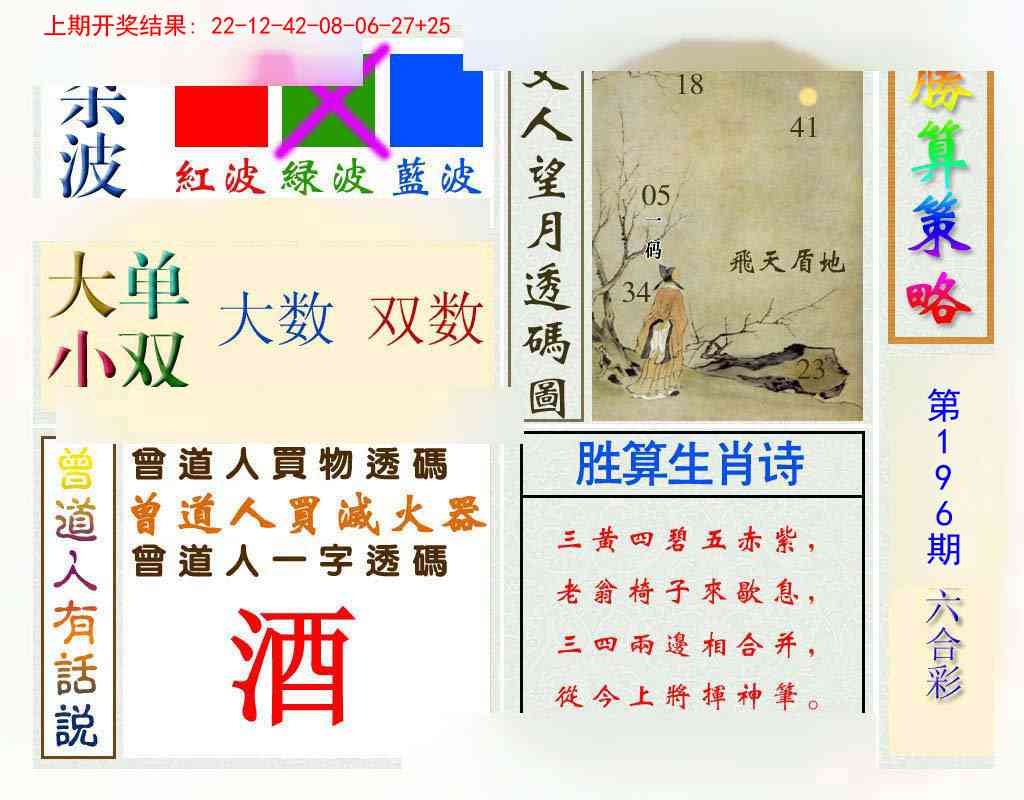 上期开奖结果: 22-12-42-08-06-27+25
波
紅波 緑波 藍波
大单
小双
大数 双数
文人望月透碼圖
18
41
05
一码
飛天盾地
34
23
勝算策略
第196期
六合彩
曾道人有話説
曾道人買物透碼
曾道人買滅火器
曾道人一字透碼
酒
胜算生肖诗
三黃四碧五赤紫，
老翁椅子來歇息，
三四兩邊相合并，
從今上將揮神筆。